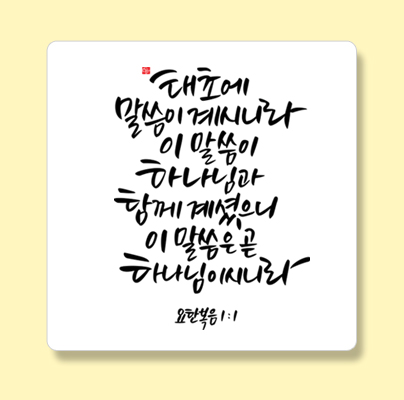 태초에
말씀이 계시니라
이 말씀이
하나님과
함께 계셨으니
이 말씀은 곧
하나님이시니라
요한복음 1:1